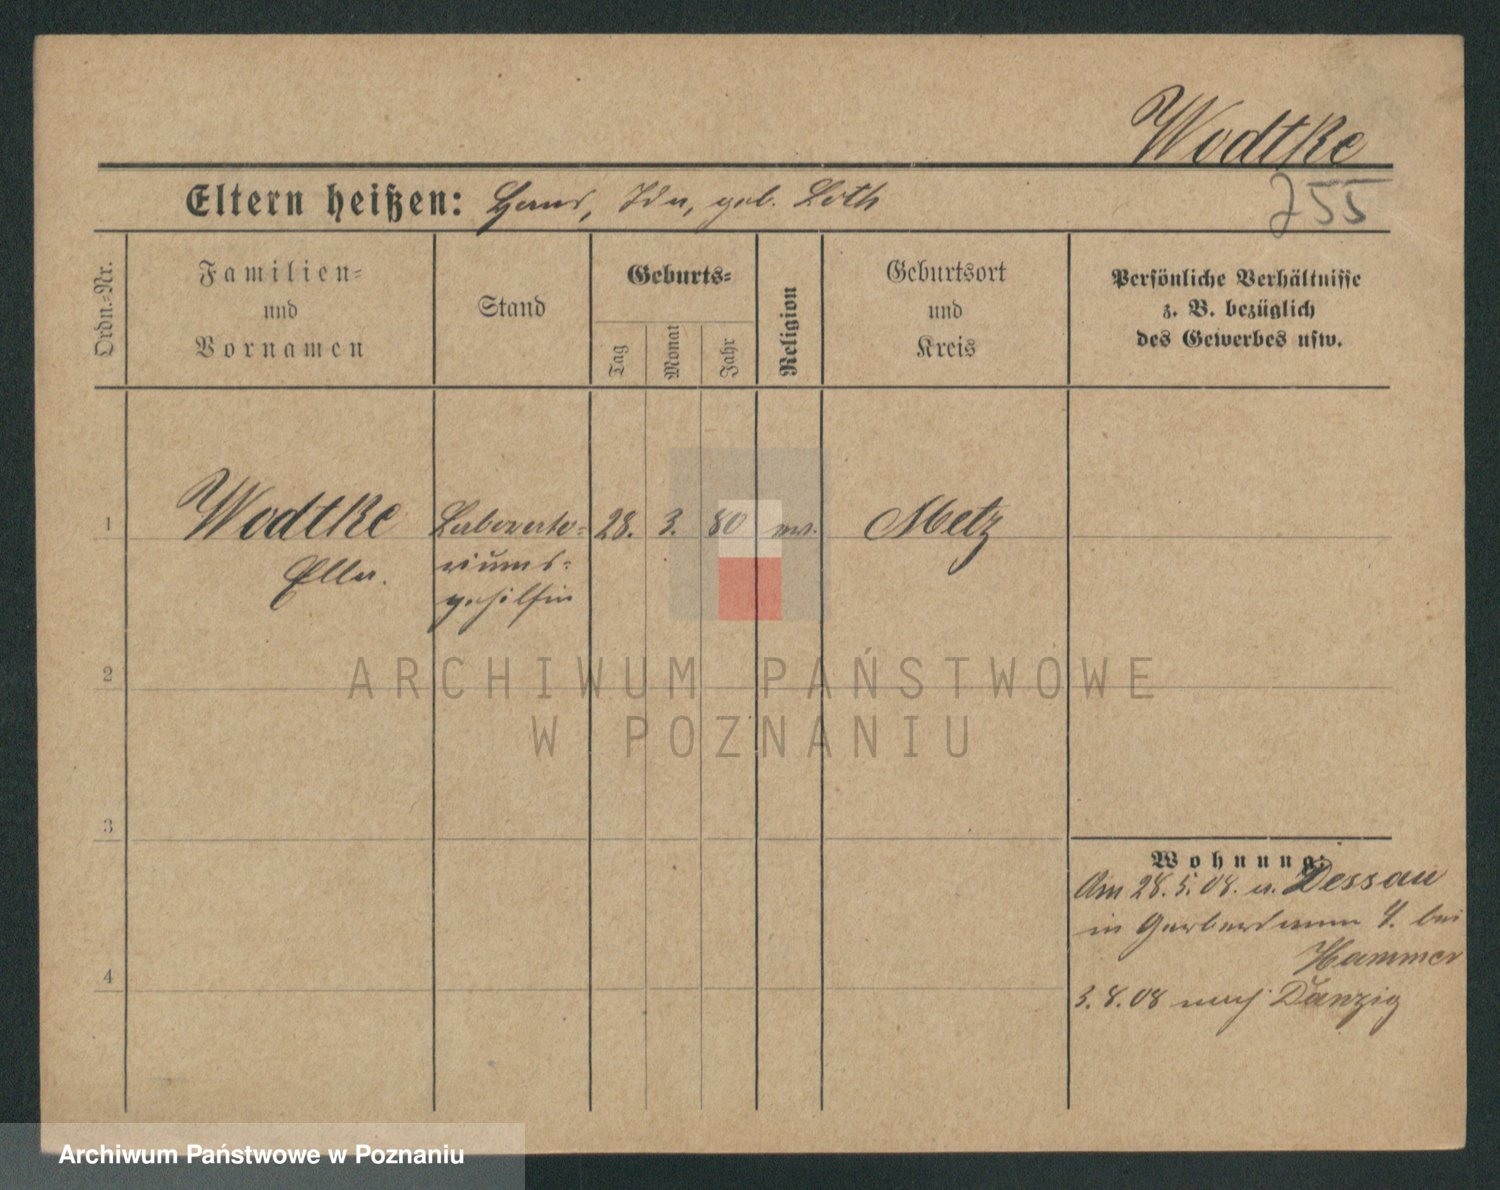 Wodtke
755
Eltern heißen: Hans, Ida, geb. Loth
Ordn.-Nr.
Familien-
und
Vornamen
Stand
Geburts-
Tag
Monat
Jahr
Religion
Geburtsort
und
Kreis
Persönliche Verhältnisse
z. B. bezüglich
des Gewerbes usw.
1 Wodtke Laborato- 28. 3. 80 ev. Metz
Ella. riums-
gehilfin
2
3
4
Wohnung:
Am 28.5.08. a. Dessau
in Gerberdamm 4. bei
Hammer
3.8.08 nach Danzig
ARCHIWUM PAŃSTWOWE
W POZNANIU
Archiwum Państwowe w Poznaniu